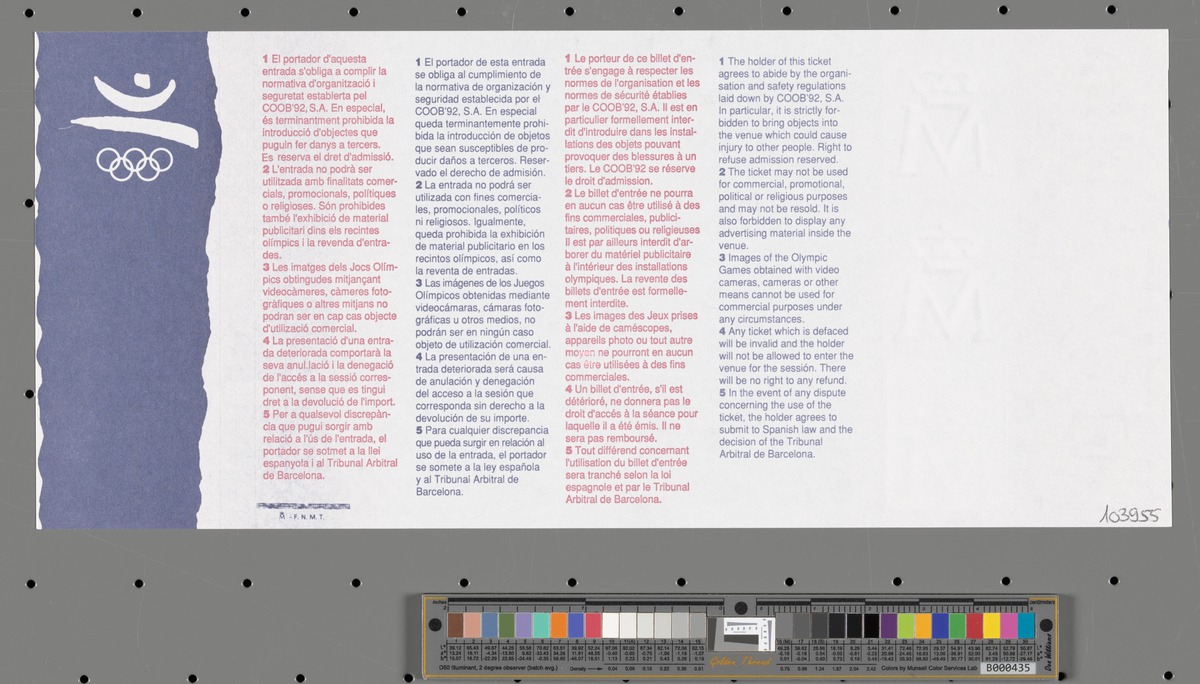 1 El portador d'aquesta
entrada s'obliga a complir la
normativa d'organització i
seguretat establerta pel
COOB'92, S.A. En especial,
és terminantment prohibida la
introducció d'objectes que
puguin fer danys a tercers.
Es reserva el dret d'admissió.
2 L'entrada no podrà ser
utilitzada amb finalitats comer-
cials, promocionals, polítiques
o religioses. Són prohibides
també l'exhibició de material
publicitari dins els recintes
olímpics i la revenda d'entra-
des.
3 Les imatges dels Jocs Olím-
pics obtingudes mitjançant
videocàmeres, càmeres foto-
gràfiques o altres mitjans no
podran ser en cap cas objecte
d'utilizació comercial.
4 La presentació d'una entra-
da deteriorada comportarà la
seva anul.lació i la denegació
de l'accés a la sessió corres-
ponent, sense que es tingui
dret a la devolució de l'import.
5 Per a qualsevol discrepàn-
cia que pugui sorgir amb
relació a l'ús de l'entrada, el
portador se sotmet a la llei
espanyola i al Tribunal Arbitral
de Barcelona.
M - F. N. M. T.
1 El portador de esta entrada
se obliga al cumplimiento de
la normativa de organización y
seguridad establecida por el
COOB'92, S.A. En especial
queda terminantemente prohi-
bida la introducción de objetos
que sean susceptibles de pro-
ducir daños a terceros. Reser-
vado el derecho de admisión.
2 La entrada no podrá ser
utilizada con fines comercia-
les, promocionales, políticos
ni religiosos. Igualmente,
queda prohibida la exhibición
de material publicitario en los
recintos olímpicos, así como
la reventa de entradas.
3 Las imágenes de los Juegos
Olímpicos obtenidas mediante
videocámaras, cámaras foto-
gráficas u otros medios, no
podrán ser en ningún caso
objeto de utilización comercial.
4 La presentación de una en-
trada deteriorada será causa
de anulación y denegación
del acceso a la sesión que
corresponda sin derecho a la
devolución de su importe.
5 Para cualquier discrepancia
que pueda surgir en relación al
uso de la entrada, el portador
se somete a la ley española
y al Tribunal Arbitral de
Barcelona.
1 Le porteur de ce billet d'en-
trée s'engage à respecter les
normes de l'organisation et les
normes de sécurité établies
par le COOB'92, S.A. Il est en
particulier formellement inter-
dit d'introduire dans les instal-
lations des objets pouvant
provoquer des blessures à un
tiers. Le COOB'92 se réserve
le droit d'admission.
2 Le billet d'entrée ne pourra
en aucun cas être utilisé à des
fins commerciales, publici-
taires, politiques ou religieuses
Il est par ailleurs interdit d'ar-
borer du matériel publicitaire
à l'intérieur des installations
olympiques. La revente des
billets d'entrée est formelle-
ment interdite.
3 Les images des Jeux prises
à l'aide de caméscopes,
appareils photo ou tout autre
moyen ne pourront en aucun
cas être utilisées à des fins
commerciales.
4 Un billet d'entrée, s'il est
détérioré, ne donnera pas le
droit d'accés à la séance pour
laquelle il a été émis. Il ne
sera pas remboursé.
5 Tout différend concernant
l'utilisation du billet d'entrée
sera tranché selon la loi
espagnole et par le Tribunal
Arbitral de Barcelona.
1 The holder of this ticket
agrees to abide by the organi-
sation and safety regulations
laid down by COOB'92, S.A.
In particular, it is strictly for-
bidden to bring objects into
the venue which could cause
injury to other people. Right to
refuse admission reserved.
2 The ticket may not be used
for commercial, promotional,
political or religious purposes
and may not be resold. It is
also forbidden to display any
advertising material inside the
venue.
3 Images of the Olympic
Games obtained with video
cameras, cameras or other
means cannot be used for
commercial purposes under
any circumstances.
4 Any ticket which is defaced
will be invalid and the holder
will not be allowed to enter the
venue for the sessión. There
will be no right to any refund.
5 In the event of any dispute
concerning the use of the
ticket, the holder agrees to
submit to Spanish law and the
decision of the Tribunal
Arbitral de Barcelona.
103955
inches
centimeters
Golden Thread
D50 Illuminant, 2 degree observer
Colors by Munsell Color Services Lab
B000435